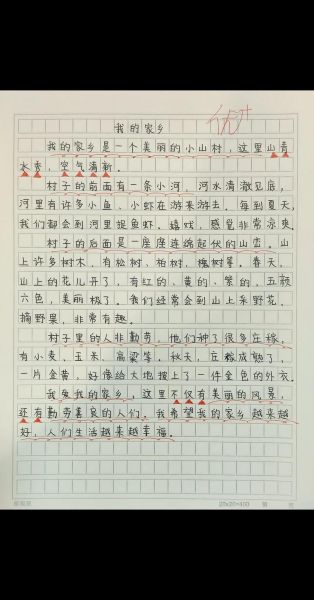 优+
我的家乡
我的家乡是一个美丽的小山村，这里山青
水秀，空气清新。
村子的前面有一条小河，河水清澈见底，
河里有许多小鱼、小虾在游来游去。每到夏天，
我们都会到河里捉鱼虾、嬉戏，感觉非常凉爽。
村子的后面是一座座连绵起伏的山峦。山
上许多树木，有松树、柏树、槐树等。春天，
山上的花儿开了，有红的、黄的、紫的，五颜
六色，美丽极了。我们经常会到山上采野花、
摘野果，非常有趣。
村子里的人非勤劳，他们种了很多庄稼，
有小麦、玉米、高粱等。秋天，庄稼成熟了，
一片金黄，好像给大地披上了一件金色的外衣。
我爱我的家乡，这里不仅有美丽的风景，
还有勤劳善良的人们。我希望我的家乡越来越
好，人们生活越来越幸福。
20x20=400